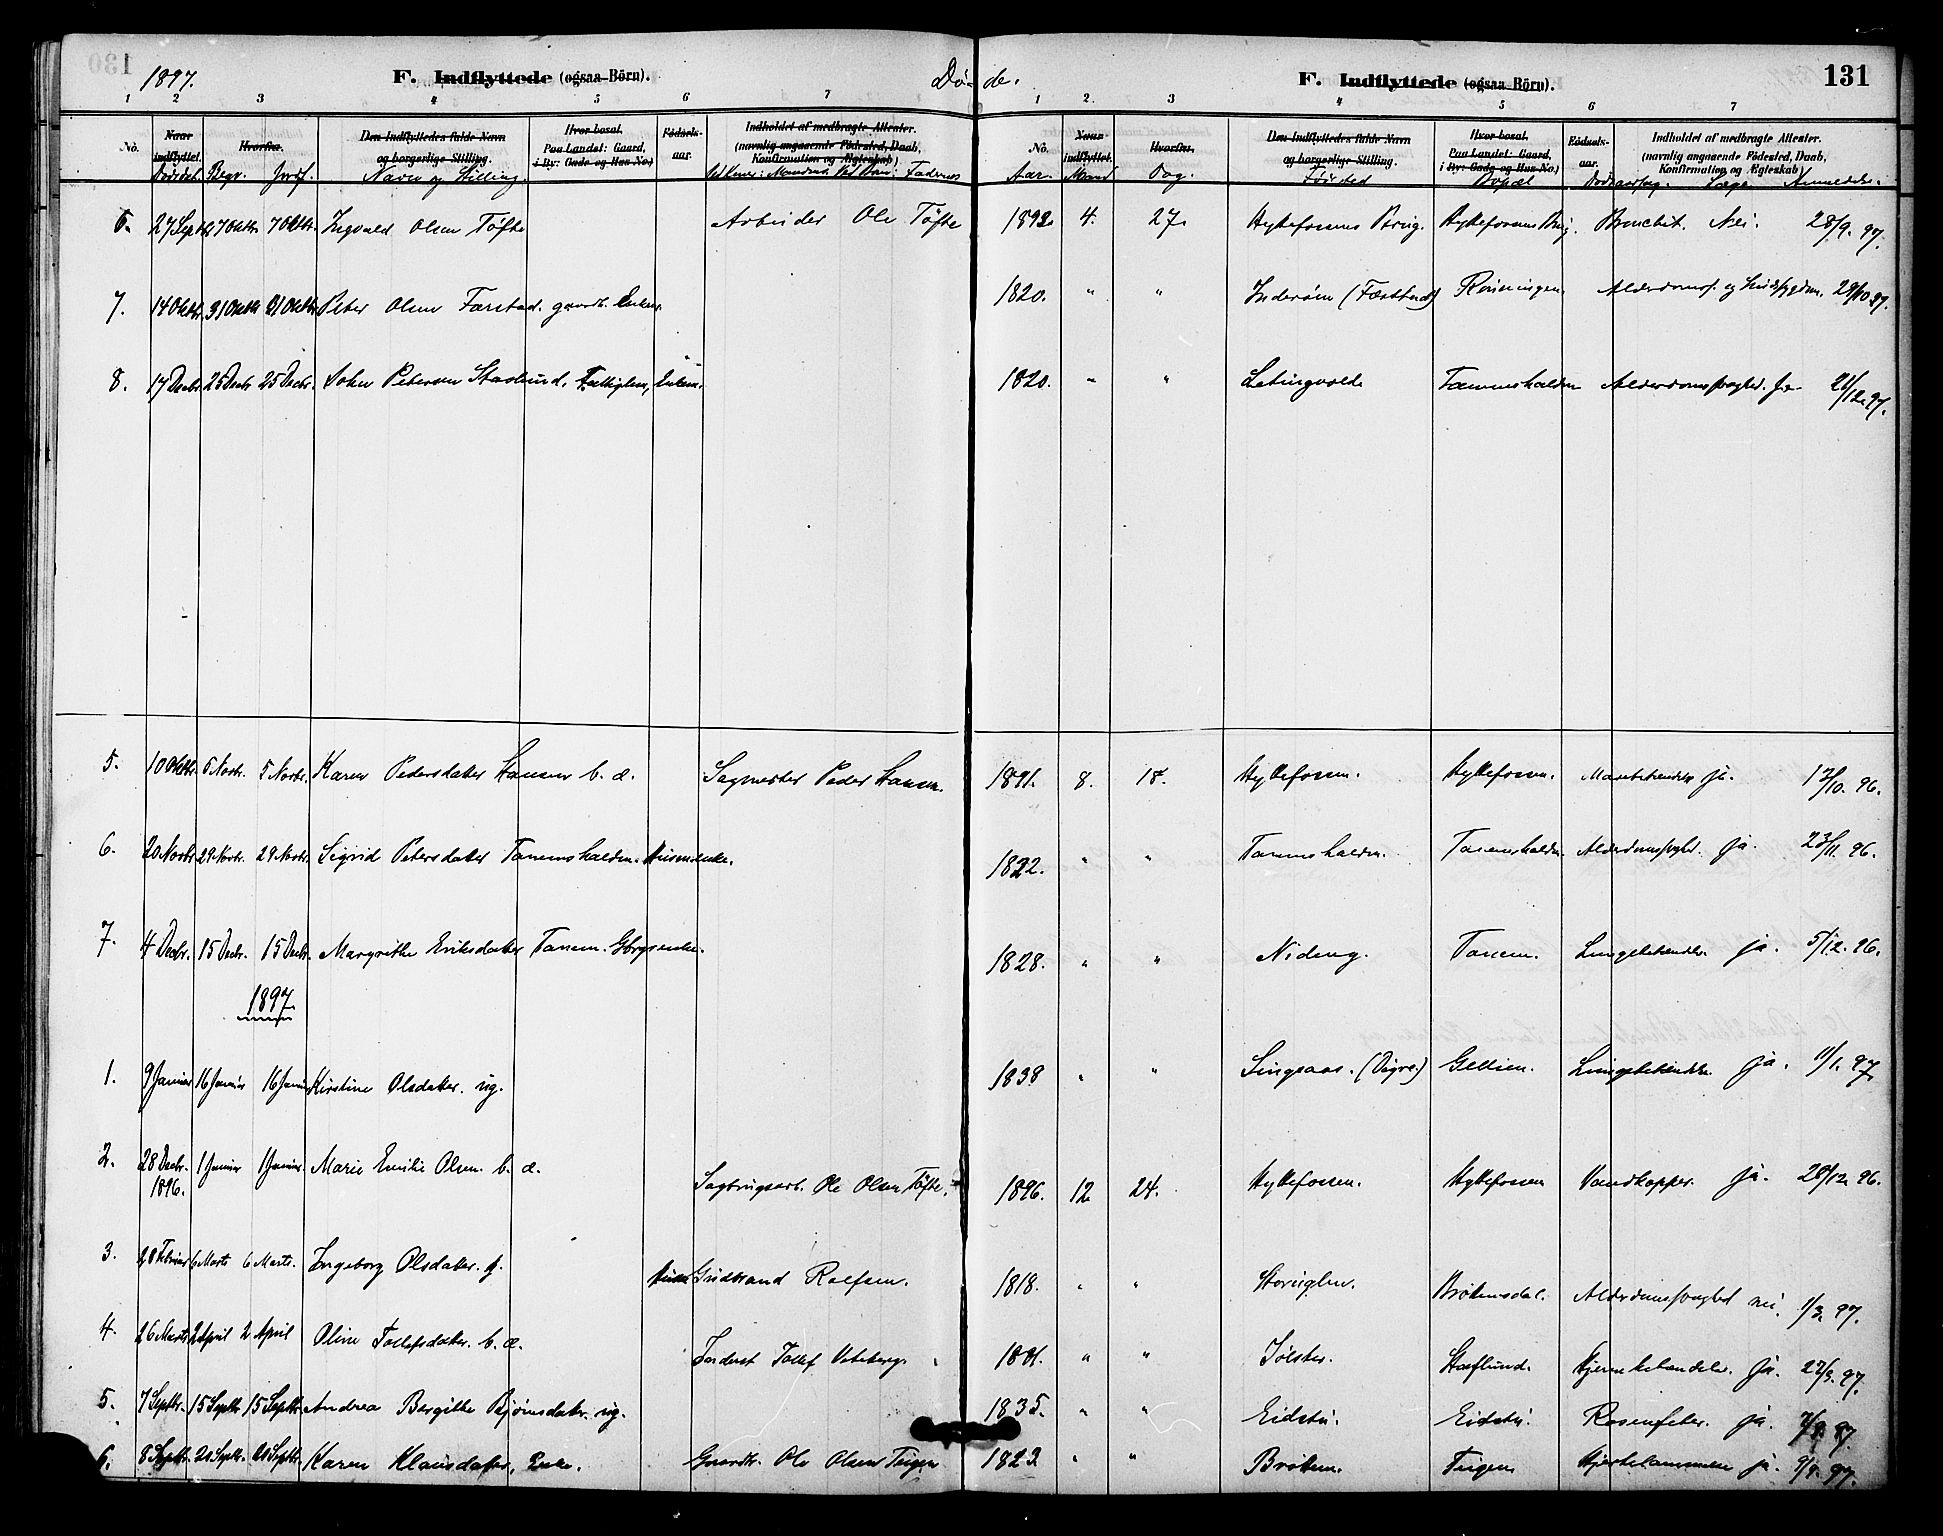 1897. F. Indflyttede (ogsaa Börn). Dö- de. F. Indflyttede (ogsaa Börn). 131
1 2 3 4 5 6 7 1 2. 3 4 5 6 7
No. Naar indflyttet. Hvorfra. Den Indflyttedes fulde Navn og borgerlige Stilling. Hvor bosat. Paa Landet: Gaard, i By: Gade og Hus-No.) Födselsaar. Indholdet af medbragte Attester. (navnlig angaaende Födested, Daab, Konfirmation og Ægteskab) No. Naar indflyttet. Hvorfra. Den Indflyttedes fulde Navn og borgerlige Stilling. Hvor bosat. Paa Landet: Gaard, i By: Gade og Hus-No.) Födselsaar. Indholdet af medbragte Attester. (navnlig angaaende Födested, Daab, Konfirmation og Ægteskab)
Dødsdat. Begr. Jordf. Navn og Stilling. Faderens Aar. Maaned Dag. Fødested Bopæl Dødsaarsag. Læge Anmeldelse.
6. 27 Septbr 7 Oktbr. 7 Oktbr. Ingvald Olsen Töfte Arbeider Ole Töfte 1892 4. 27. Hyttefossens Brug. Hyttefossens Brug. Bronchit. Nei. 28/9. 97.
7. 14 Oktbr. 31 Oktbr 31 Oktbr. Peter Olsen Farstad. gaardb. Enkem. 1820. " " Inderøen Rønningen. 29/10 97.
8. 17 Decbr. 25 Decbr 25 Decbr. John Petersen Stavlund, Enkem. 1820. " " Tanemshalden 21/12. 97.
5. 10 Oktbr. 5 Novbr. 5 Novbr. Karen Pedersdatter Hansen b. æ. Sagmester Peder Hansen. 1891. 8. 18. Hyttefossen. Hyttefossen. ja. 12/10. 96.
6. 20 Novbr. 29 Novbr. 29 Novbr. Sigrid Petersdatter Tanemshalden. Husmdenke. 1822. " " Tanemshalden. Tanemshalden. Alderdomssvaghed. ja. 23/11. 96.
7. 4 Decbr. 15 Decbr. 15 Decbr. Margrethe Eriksdatter Tanem. Gbrgsenke. 1828. " " Nideng. Tanem. Lungebetændelse. ja. 5/12. 96.
1897.
1. 9 Januar 16 Januar 16 Januar Kirstine Olsdatter. ug. 1838 " " Singsaas. (Digre.) Gellien. Lungebetændelse. ja. 11/1. 97.
2. 28 Decbr. 1896. 1 Januar 1 Januar. Marie Emilie Olsen. b. æ. Sagbrugsarb. Ole Olsen Töfte. 1896. 12 24. Hyttefossen. Hyttefossen Vandkopper. ja. 28/12 96.
3. 28 Februar 6 Marts 6 Marts. Ingeborg Olsdatter. g. Gudbrand Rolfsen. 1818. " " Bröttemsdal. Alderdomssvaghed nei. 1/3. 97.
4. 26 Marts 2 April 2 April Oline Tollefsdatter. b. æ. Inderst Tollef 1891. " " Jølster. Hjernebetændelse. ja. 27/3. 97.
5. 7 Septbr. 15 Septbr 15 Septbr. Andrea Bergitte Bjørnsdatter. ug. 1835. " " Eidstu. Eidstu. Rosenfeber. ja. 7/9. 97.
6. 8 Septbr. 20 Septbr. 20 Septbr. Karen Klausdatter, Enke. Gaardbr. Ole Olsen Teigen 1823 " " Bröttem. Teigen ja. 9/9. 97.